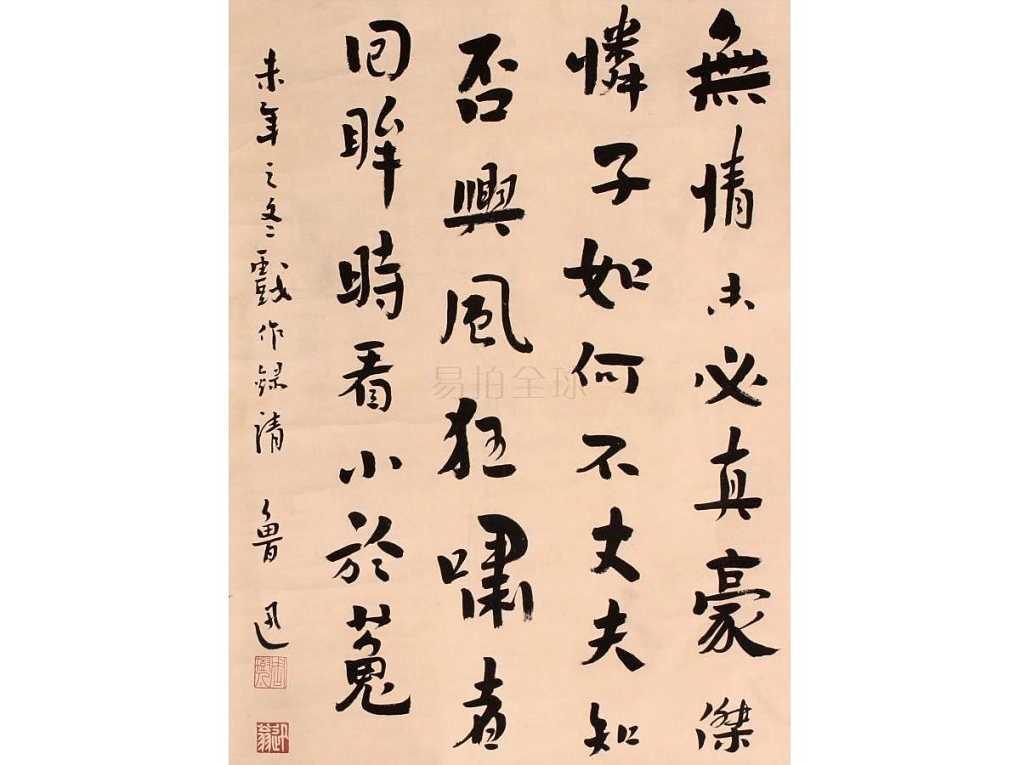 無情未必真豪傑
憐子如何不丈夫知
否興風狂嘯者
回眸時看小於菟
未年之冬戲作錄請
魯迅
易拍全球